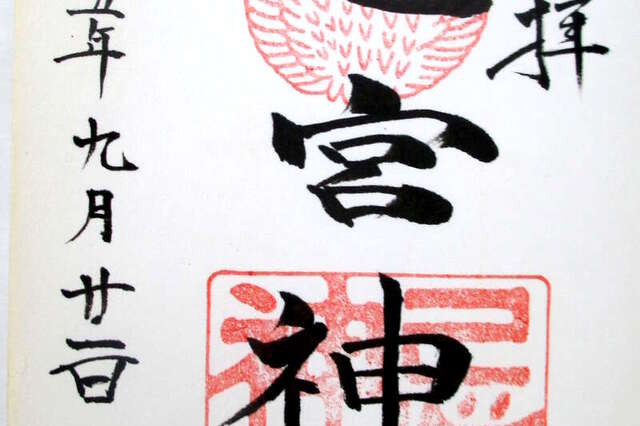 拝
宮神
五年九月廿一日